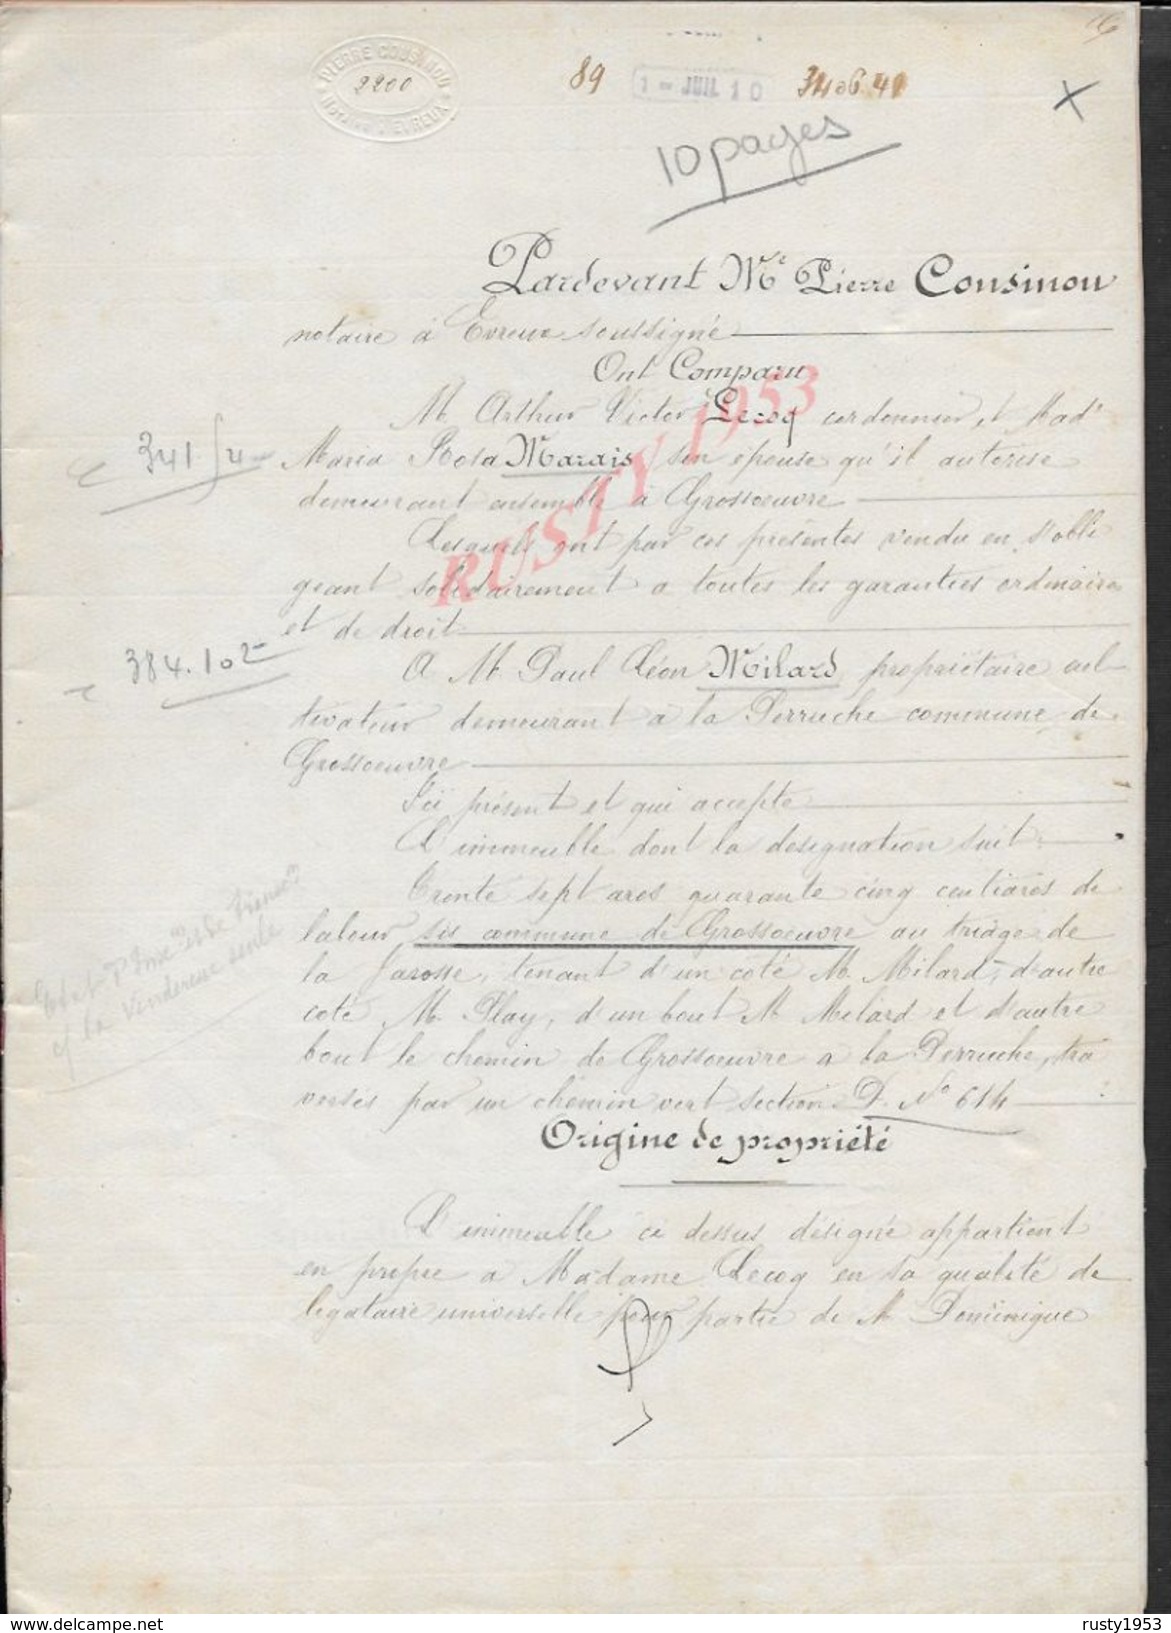 PIERRE COUSINOU
2200
NOTAIRE D'EVREUX
89
1 - JUIL 10
10 pages
Pardevant Me Pierre Cousinou
notaire à Evreux soussigné
Ont Comparu
M. Arthur Victor Lecoq cordonnier, et Made
Maria Rosa Marais son épouse qu'il autorise
demeurant ensemble à Grossoeuvre
Lesquels ont par ces présentes vendu en s'obli
geant solidairement a toutes les garanties ordinaires
et de droit
A M. Paul Léon Milard propriétaire cul-
tivateur demeurant à la Perruche commune de
Grossoeuvre
Ici présent et qui accepte
L'immeuble dont la désignation suit :
Trente sept ares quarante cinq centiares de
labour sis commune de Grossoeuvre au triage de
la Garosse, tenant d'un coté M. Milard, d'autre
coté M. Play, d'un bout M Milard et d'autre
bout le chemin de Grossoeuvre a la Perruche, tra
versés par un chemin vert section D. No 614
Origine de propriété
L'immeuble ci dessus désigné appartient
en propre a Madame Lecoq en sa qualité de
légataire universelle pour partie de M. Dominique
341
384.10
la Venderesse seule
RUSTY1953
www.delcampe.net
rusty1953